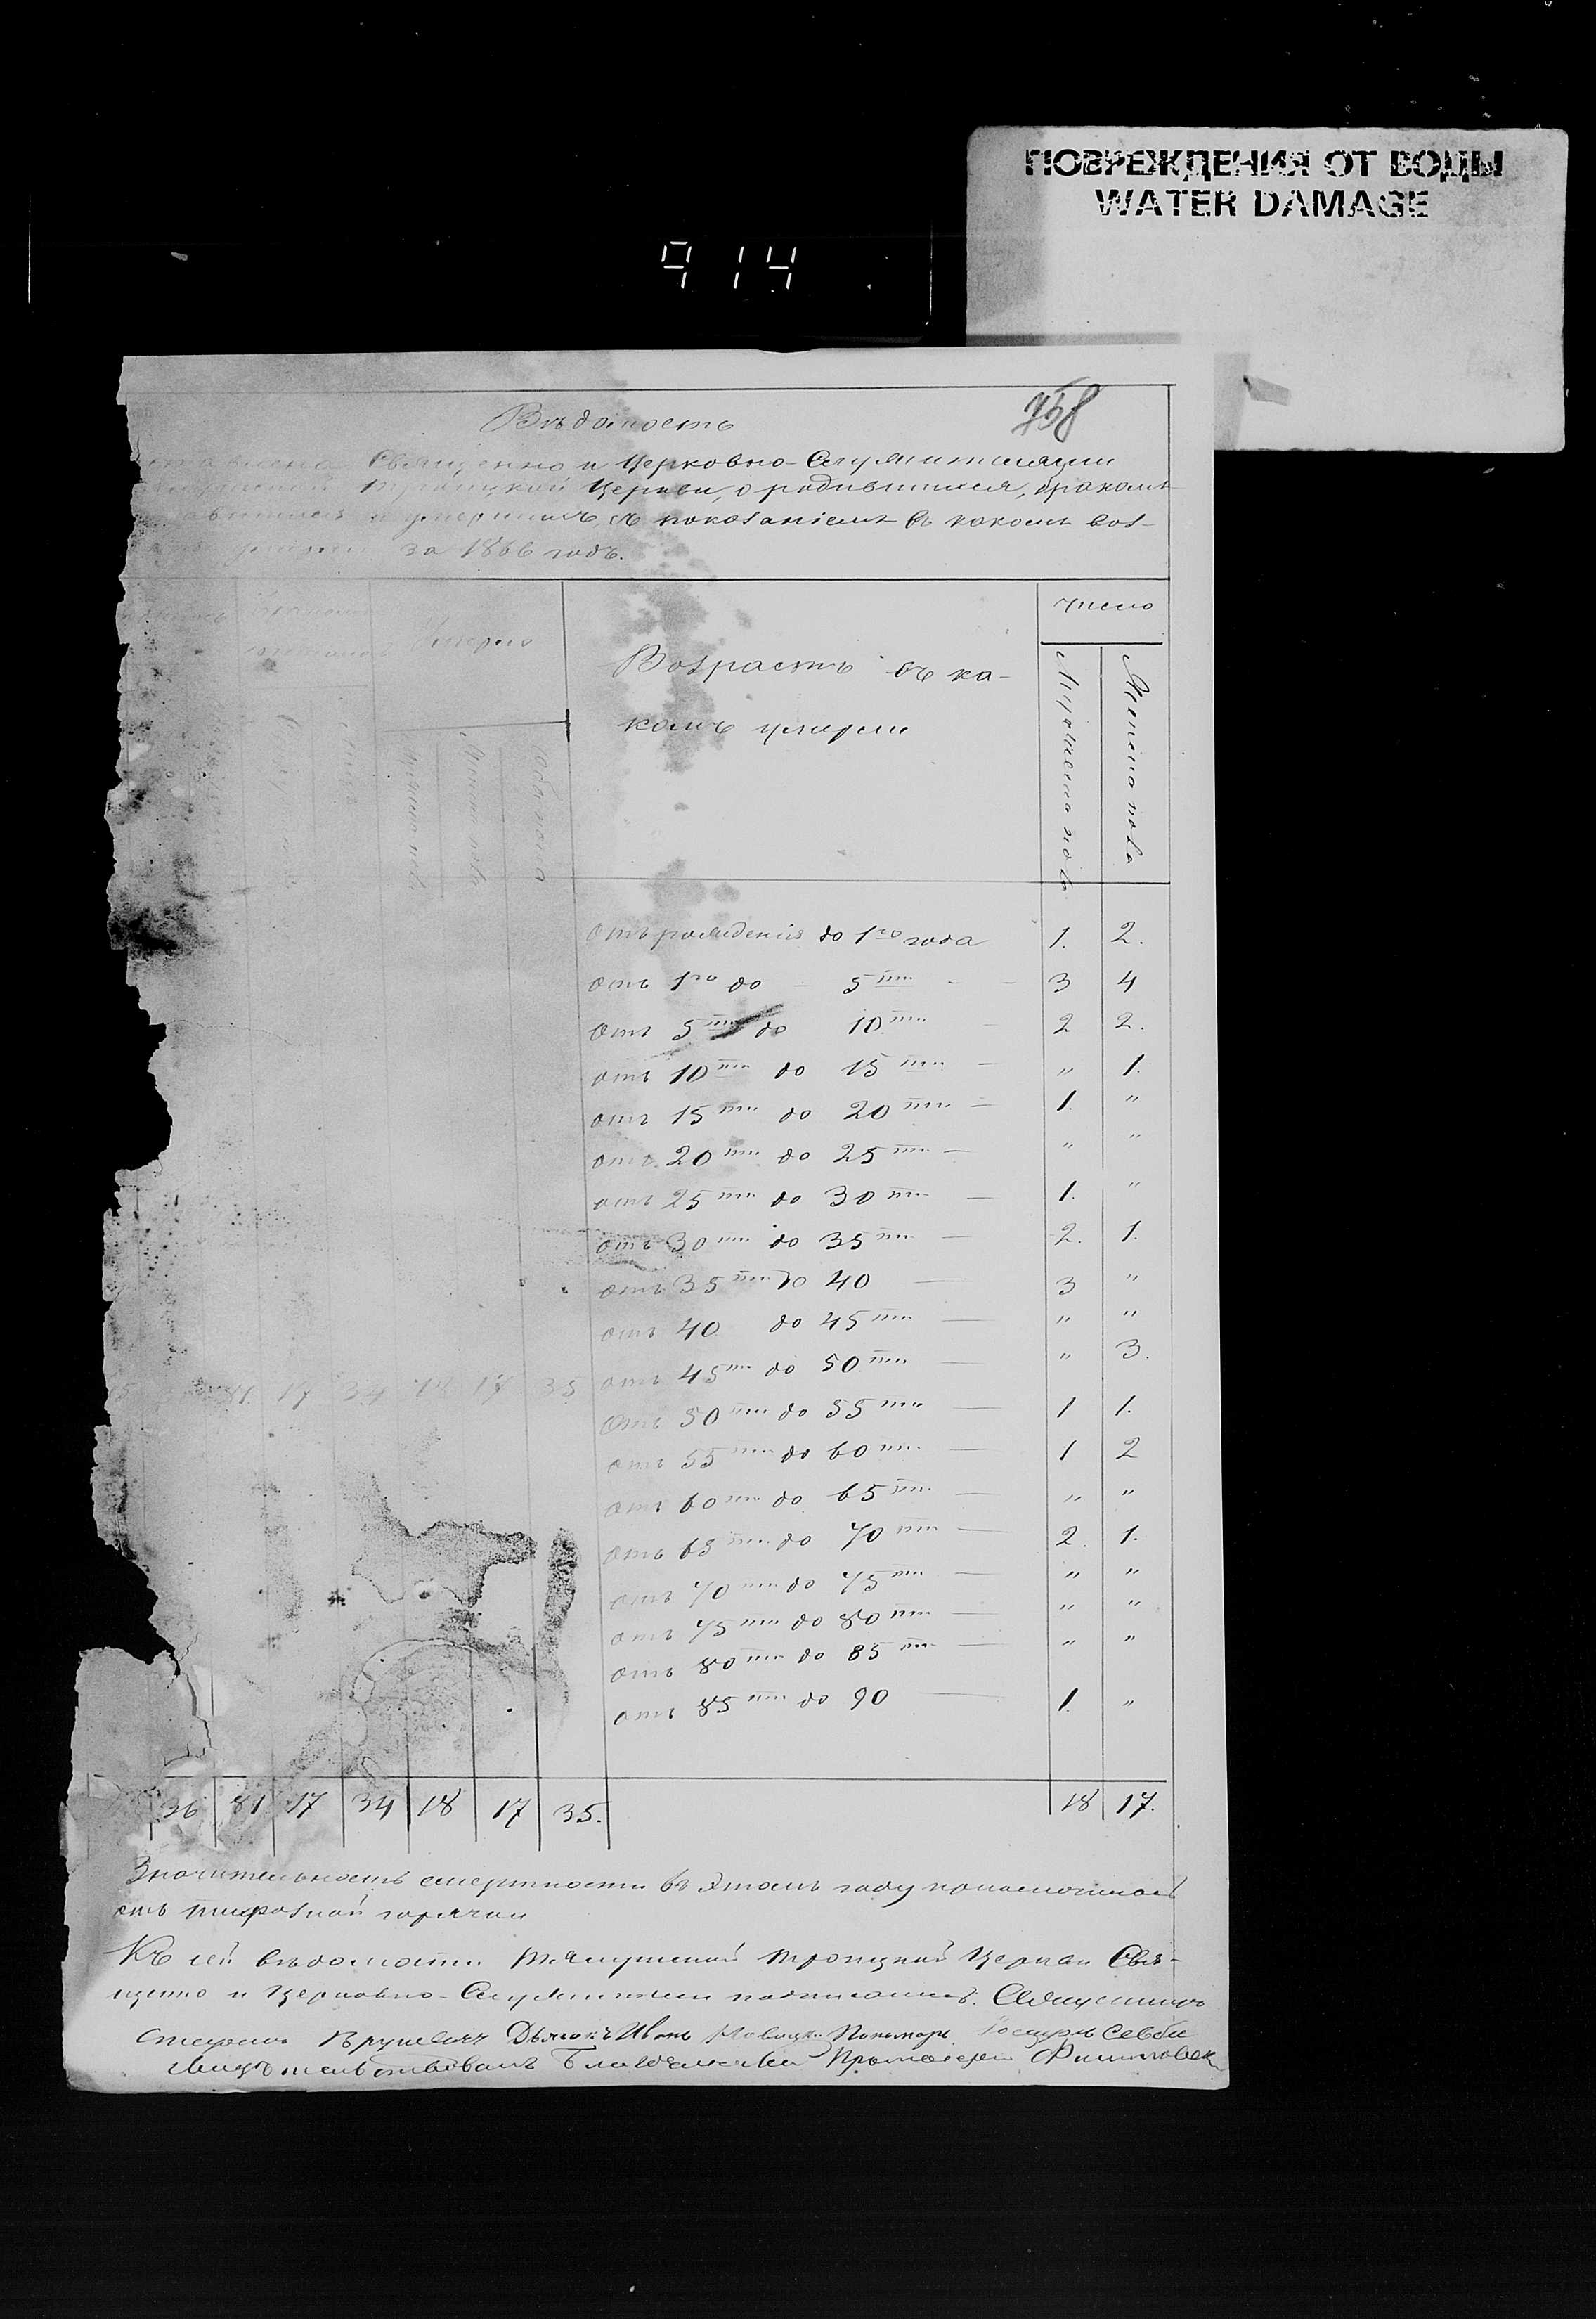 ПОВРЕЖДЕНИЯ ОТ ВОДЫ
WATER DAMAGE
914
758
Вѣдомость
Священно и Церковно-Служителями
Троицкой Церкви, о родившихся, бракомъ
и умершихъ, съ показаніемъ въ какомъ воз-
за 1866 годъ.
Умерло
Число
Возрастъ въ ка-
комъ умерли
Мужеска пола
Женска пола
Обоего пола
отъ рожденія до 1го года 1. 2.
отъ 1го до 5ти 3 4
отъ 5ти до 10ти 2 2.
отъ 10ти до 15ти " 1.
отъ 15ти до 20ти 1. "
отъ 20ти до 25ти " "
отъ 25ти до 30ти 1. "
отъ 30ти до 35ти 2. 1.
отъ 35ти до 40 3 "
отъ 40 до 45ти " "
отъ 45ти до 50ти " 3.
81. 17 34 18 17 35
отъ 50ти до 55ти 1 1.
отъ 55ти до 60ти 1 2
отъ 60ти до 65ти " "
отъ 65ти до 70ти 2. 1.
отъ 70ти до 75ти " "
отъ 75ти до 80ти " "
отъ 80ти до 85ти " "
отъ 85ти до 90 1. "
36 81 17 34 18 17 35. 18 17.
Значительность смертности въ этомъ году
отъ тифозной горячки
Къ сей вѣдомости Троицкой Церкви Свя-
щенно и Церковно-Служители подписались. Священникъ
Дьячокъ Иванъ Новицкій Пономарь
Благочинный Протоіерей